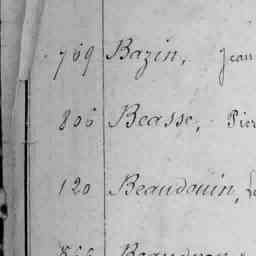 769 Bazin, Jean
806 Beasse, Pier
120 Beaudouin,